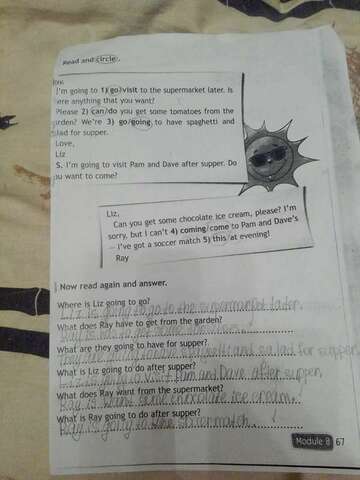 Read and circle.
Ray,
I'm going to 1) go/visit to the supermarket later. Is
there anything that you want?
Please 2) can/do you get some tomatoes from the
garden? We're 3) go/going to have spaghetti and
salad for supper.
Love,
Liz
S. I'm going to visit Pam and Dave after supper. Do
you want to come?
Liz,
Can you get some chocolate ice cream, please? I'm
sorry, but I can't 4) coming/come to Pam and Dave's
– I've got a soccer match 5) this/at evening!
Ray
Now read again and answer.
Where is Liz going to go?
Liz is going to go to the supermarket later.
What does Ray have to get from the garden?
What are they going to have for supper?
spaghetti and salad for supper
What is Liz going to do after supper?
Liz is going to visit Pam and Dave after supper.
What does Ray want from the supermarket?
Ray is want some chocolate ice cream.
What is Ray going to do after supper?
Ray is going to soccer match.
Module 8 67